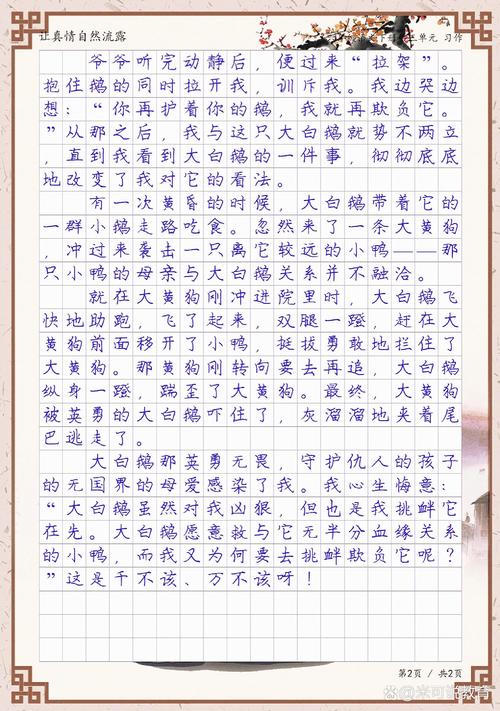 让真情自然流露
单元 习作
爷爷听完动静后，便过来“拉架”。
抱住鹅的同时拉开我，训斥我。我边哭边
想：“你再护着你的鹅，我就再欺负它。
”从那之后，我与这只大白鹅就势不两立
，直到我看到大白鹅的一件事，彻彻底底
地改变了我对它的看法。
有一次黄昏的时候，大白鹅带着它的
一群小鹅走路吃食。忽然来了一条大黄狗
，冲过来袭击一只离它较远的小鸭——那
只小鸭的母亲与大白鹅关系并不融洽。
就在大黄狗刚冲进院里时，大白鹅飞
快地助跑，飞了起来，双腿一蹬，赶在大
黄狗前面移开了小鸭，挺拔勇敢地拦住了
大黄狗。那黄狗刚转向要去再追，大白鹅
纵身一蹬，踹歪了大黄狗。最终，大黄狗
被英勇的大白鹅吓住了，灰溜溜地夹着尾
巴逃走了。
大白鹅那英勇无畏，守护仇人的孩子
的无国界的母爱感染了我。我心生悔意：
“大白鹅虽然对我凶狠，但也是我挑衅它
在先。大白鹅愿意救与它无半分血缘关系
的小鸭，而我又为何要去挑衅欺负它呢？
”这是千不该、万不该呀！
第2页 / 共2页